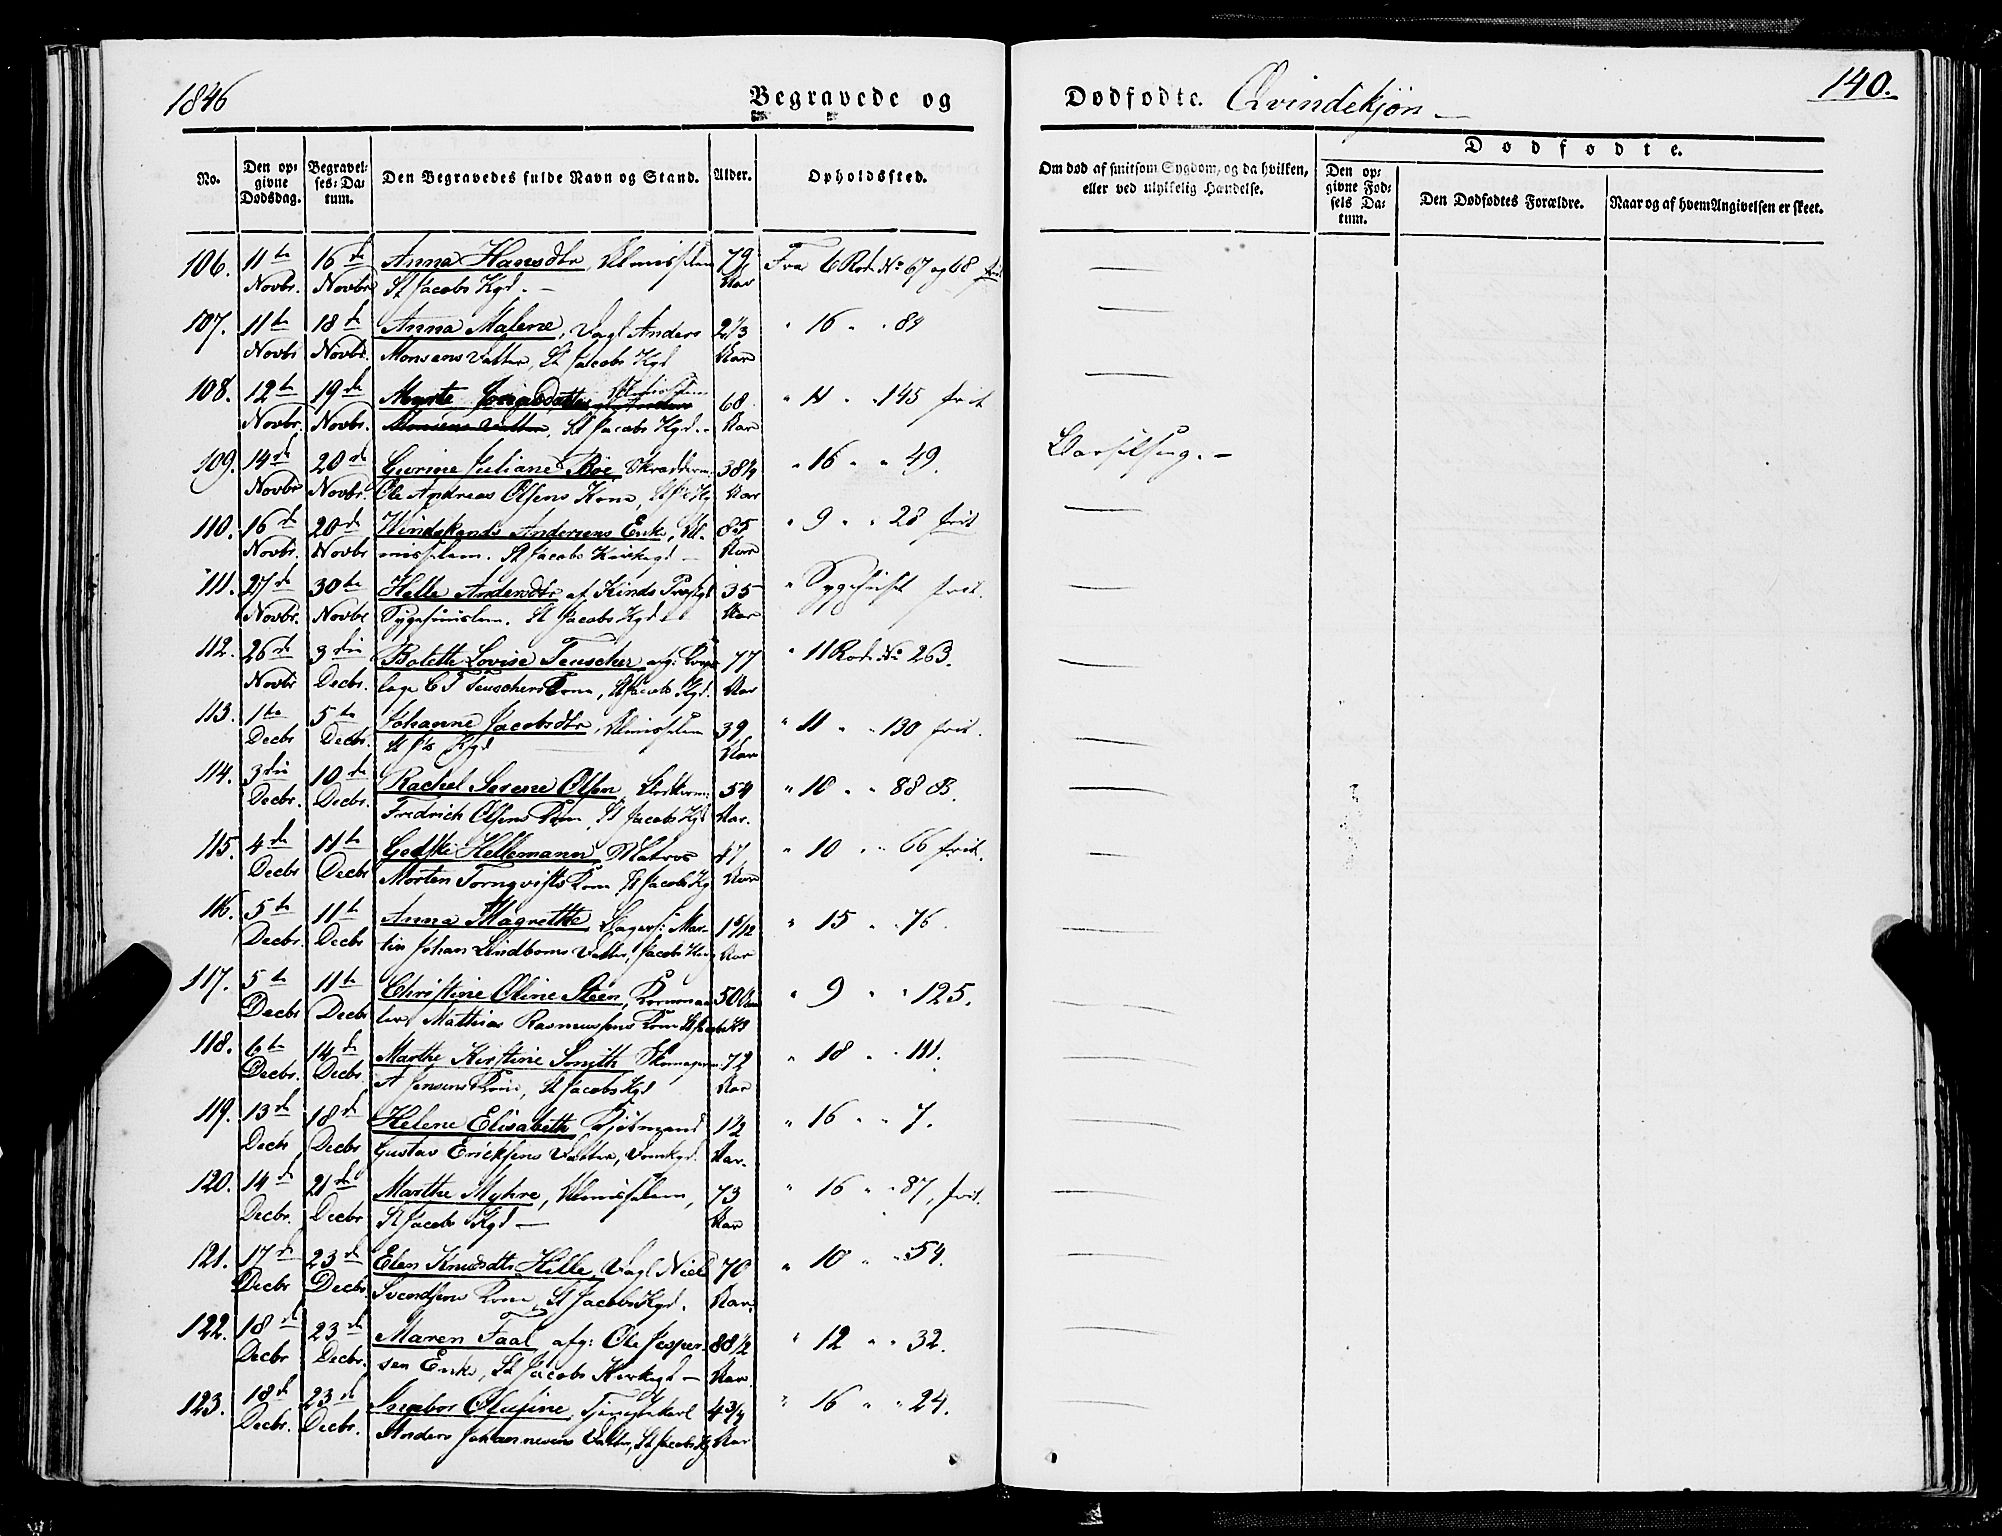 1846
Begravede og
Dødfødte. Qvindekjøn
140.
No.
Den op-
givne
Dødsdag.
Begravel-
ses-Da-
tum.
Den Begravedes fulde Navn og Stand.
Alder.
Opholdssted.
Om død af smitsom Sygdom, og da hvilken,
eller ved ulykkelig Hændelse.
Dødfødte.
Den op-
givne Fød-
sels Da-
tum.
Den Dødfødtes Forældre.
Naar og af hvem Angivelsen er skeet.
106. 11te 16de Anna Hansdtr, Almisselem 79 Fra 6 Rod. No 67 og 68 frit
Novbr. Novbr St Jacobs Kgd. Aar
107. 11te 18de Anna Malene, Vagt Anders 2 1/3 " 16 " " 84
Novbr Novbr. Monsens Datter, St Jacobs Kgd Aar
108. 12te 19de Marte Jonasdatter Almisselem 68 " 11 " " 145 frit
Novbr. Novbr. Monsens Datter, St Jacobs Kgd. Aar
109. 14de 20de Gurine Juliane Bøe Skrædderm. 38 1/4 " 16 " " 49. Barselseng.
Novbr Novbr. Ole Andreas Olsens Kone, Aar
110. 16de 20de Andersens Enke, Al- 85 " 9 " " 28 frit
Novbr. Novbr misselem. St Jacobs Kirkegd Aar
111. 27de 30te Helle Andersdtr af Kinds Præstgd 35 " Sygehuset frit.
Novbr. Novbr St Jacobs Kgd. Aar
112. 26de 3die Bolette Lovise Teuscher afg: 77 " 11 Rod. No 263.
Novbr Decbr. Teuschers Kone, St Jacobs Kgd. Aar
113. 1te 5te Johanne Jacobsdtr, Almisselem 39 " 11 " " 130 frit.
Decbr Decbr. Kgd Aar
114. 3die 10de Rachel Serene Olsen, 54 " 10 " " 88 B.
Decbr. Decbr. Fredrich Olsens Kone, St Jacobs Kgd Aar.
115. 4de 11te Godske Hellemann, Matros 47 " 10 " " 66 frit.
Decbr Decbr Morten Tornqvists Kone St Jacobs Kg Aar
116. 5te 11te Anna Magrethe, Mar- 1 5/12 " 15 " " 76.
Decbr. Decbr tin Johan Lindboms Datter, Jacobs Aar
117. 5te 11te Christine Oline Steen, Kornmaa- 50 Aar " 9 " " 125.
Decbr Decbr ler Mathias Rasmussens Kone
118. 6te 14de Marthe Kirstine Smith Skomagerm. 72 " 18 " " 111.
Decbr. Decbr. A Jensens Kone, St Jacobs Kgd Aar
119. 13de 18de Helene Elisabeth Kjøbmand 1 1/2 " 16 " " 7.
Decbr Decbr Gustav Ericksens Datter, Domkgd. Aar.
120. 14de 21de Marthe Myhre, Almisselem, 73 " 16 " " 87, frit.
Decbr. Decbr St Jacobs Kgd Aar
121. 17de 23de Elen Knudsdtr Hille, Vagt Niels 70 " 10 " " 54.
Decbr Decbr. Svendsens Kone, St Jacobs Kgd. Aar.
122. 18de 23de Maren Faal, afg: Ole Jesper- 88 1/2 " 12 " " 32.
Decbr Decbr. sen Enke, St Jacobs Kirkegd Aar.
123. 18de 23de Ingebor Olufine, Tjenestekarl 4 3/4 " 16 " " 24.
Decbr. Decbr. Anders Johannesens Datter, St Jacobs Kg Aar